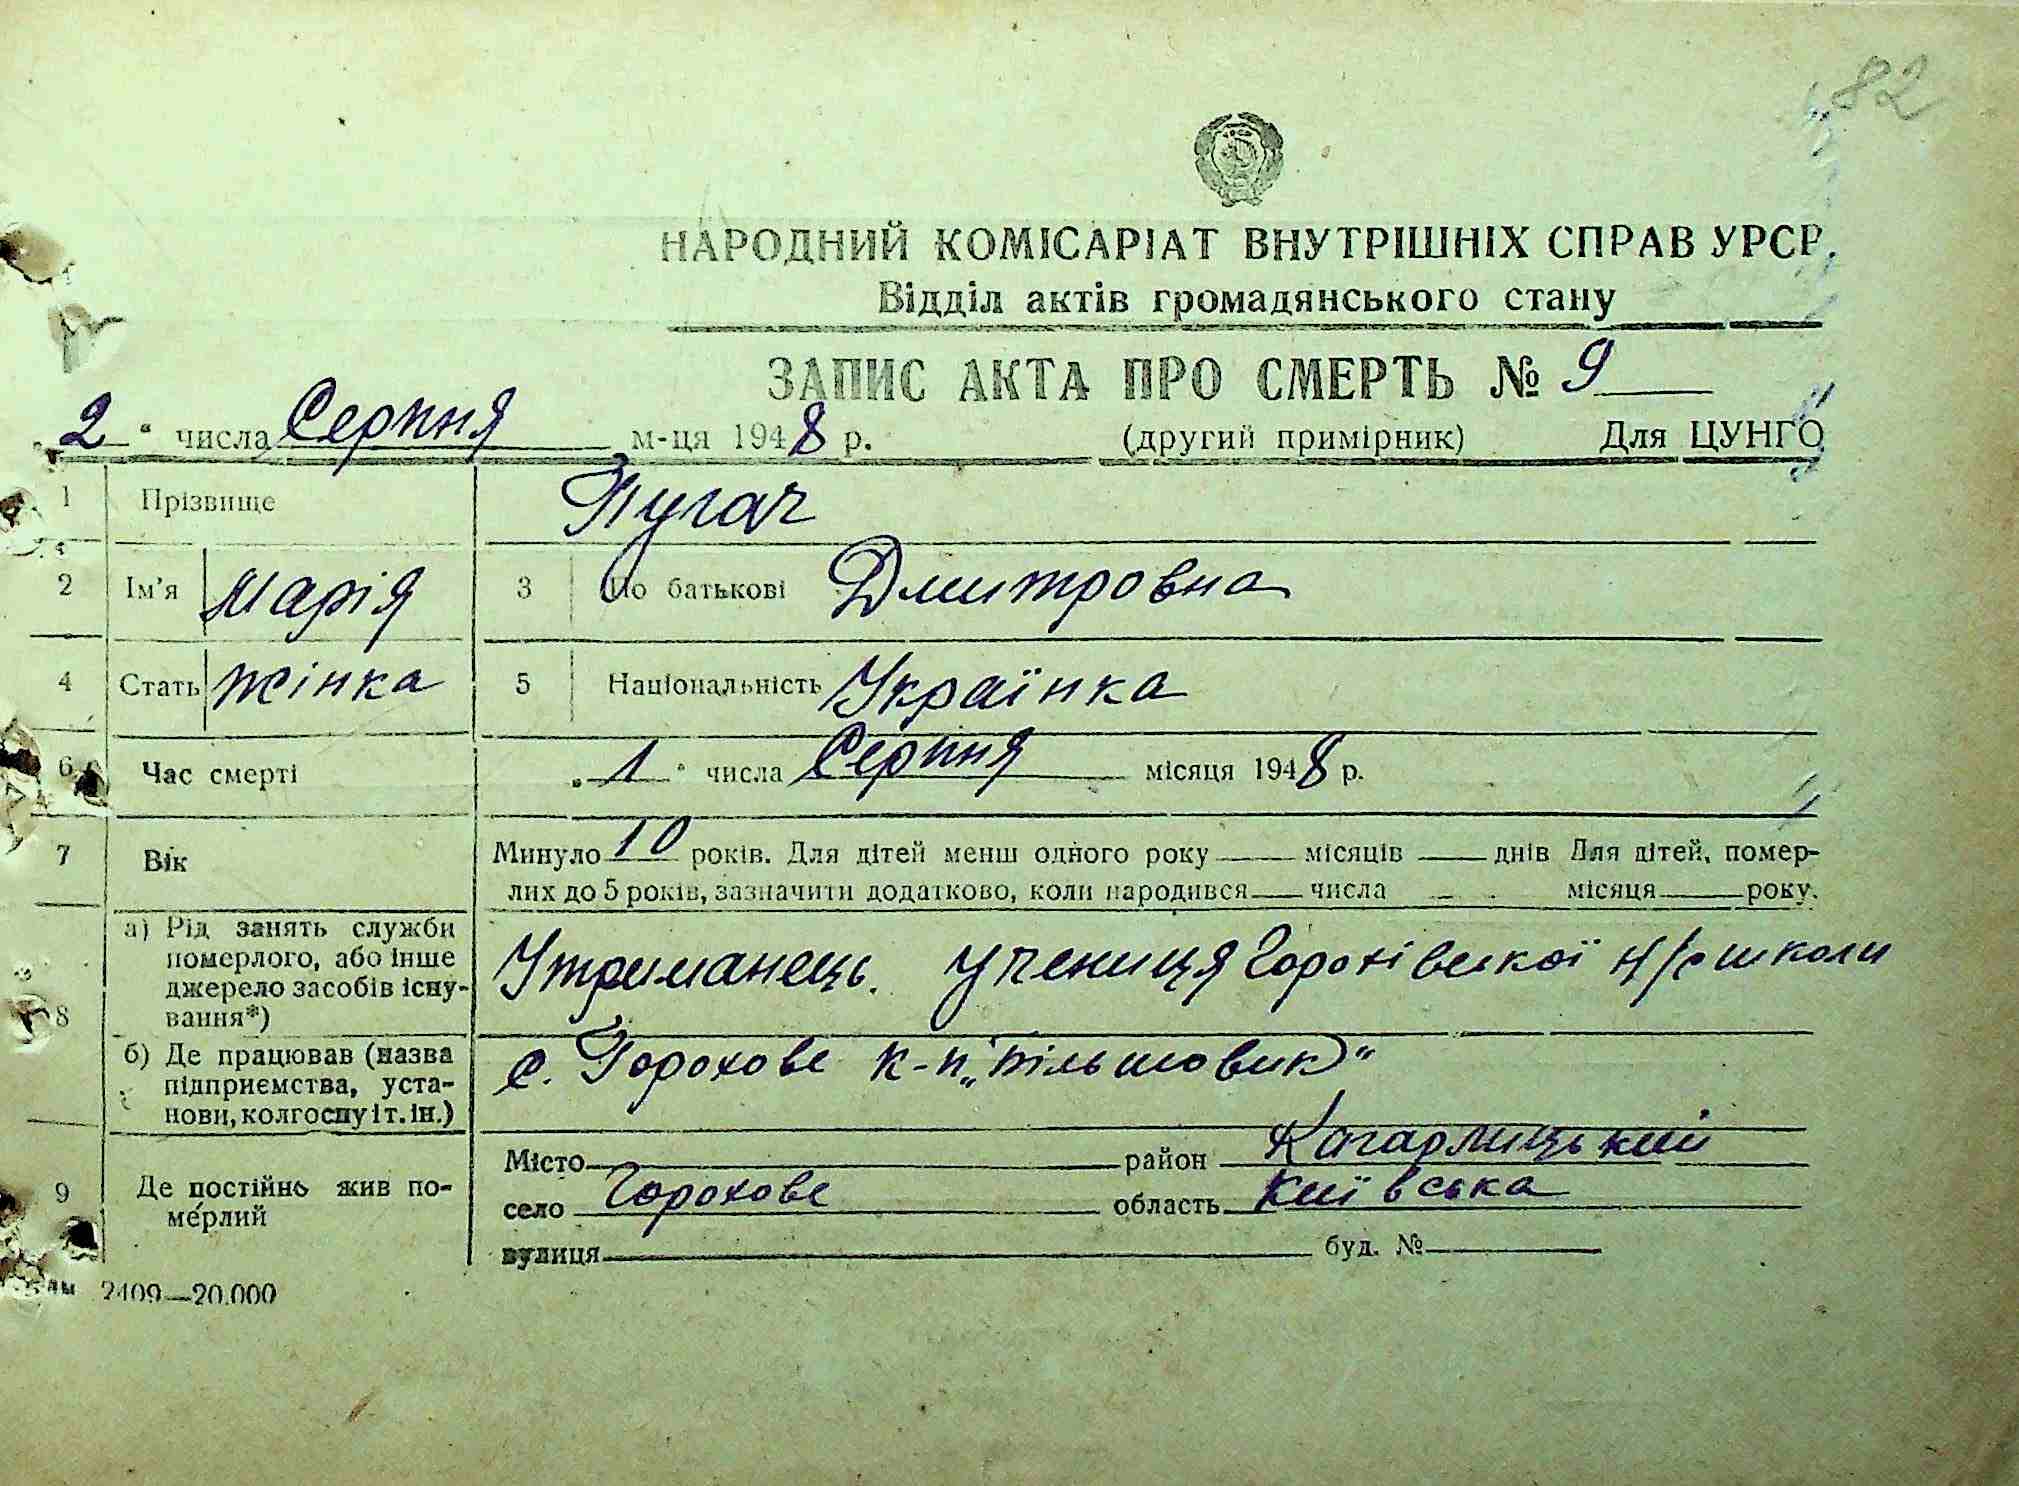 82
НАРОДНИЙ КОМІСАРІАТ ВНУТРІШНІХ СПРАВ УРСР.
Відділ актів громадянського стану
ЗАПИС АКТА ПРО СМЕРТЬ № 9
„2“ числа Серпня м-ця 1948 р. (другий примірник) Для ЦУНГО
1 Прізвище Пугач
2 Ім'я Марія 3 По батькові Дмитровна
4 Стать Жінка 5 Національність Українка
6 Час смерті „1“ числа Серпня місяця 1948 р.
7 Вік Минуло 10 років. Для дітей менш одного року місяців днів Для дітей, помер-
лих до 5 років, зазначити додатково, коли народився числа місяця року.
8 а) Рід занять служби
померлого, або інше
джерело засобів існу-
вання*)
Утриманець. Учениця Горохівської н/с школи
б) Де працював (назва
підприємства, уста-
нови, колгоспу і т. ін.)
с. Горохове к-п „Більшовик“
9 Де постійно жив по-
мерлий
Місто район Кагарлицький
село Горохове область Київська
вулиця буд. №
2409—20.000